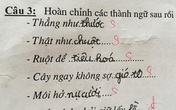 Câu 3: Hoàn chỉnh các thành ngữ sau rồi
- Thẳng như thước
- Thật như chuột
- Ruột để tiêu hoá
- Cây ngay không sợ gió to
- Môi hở người